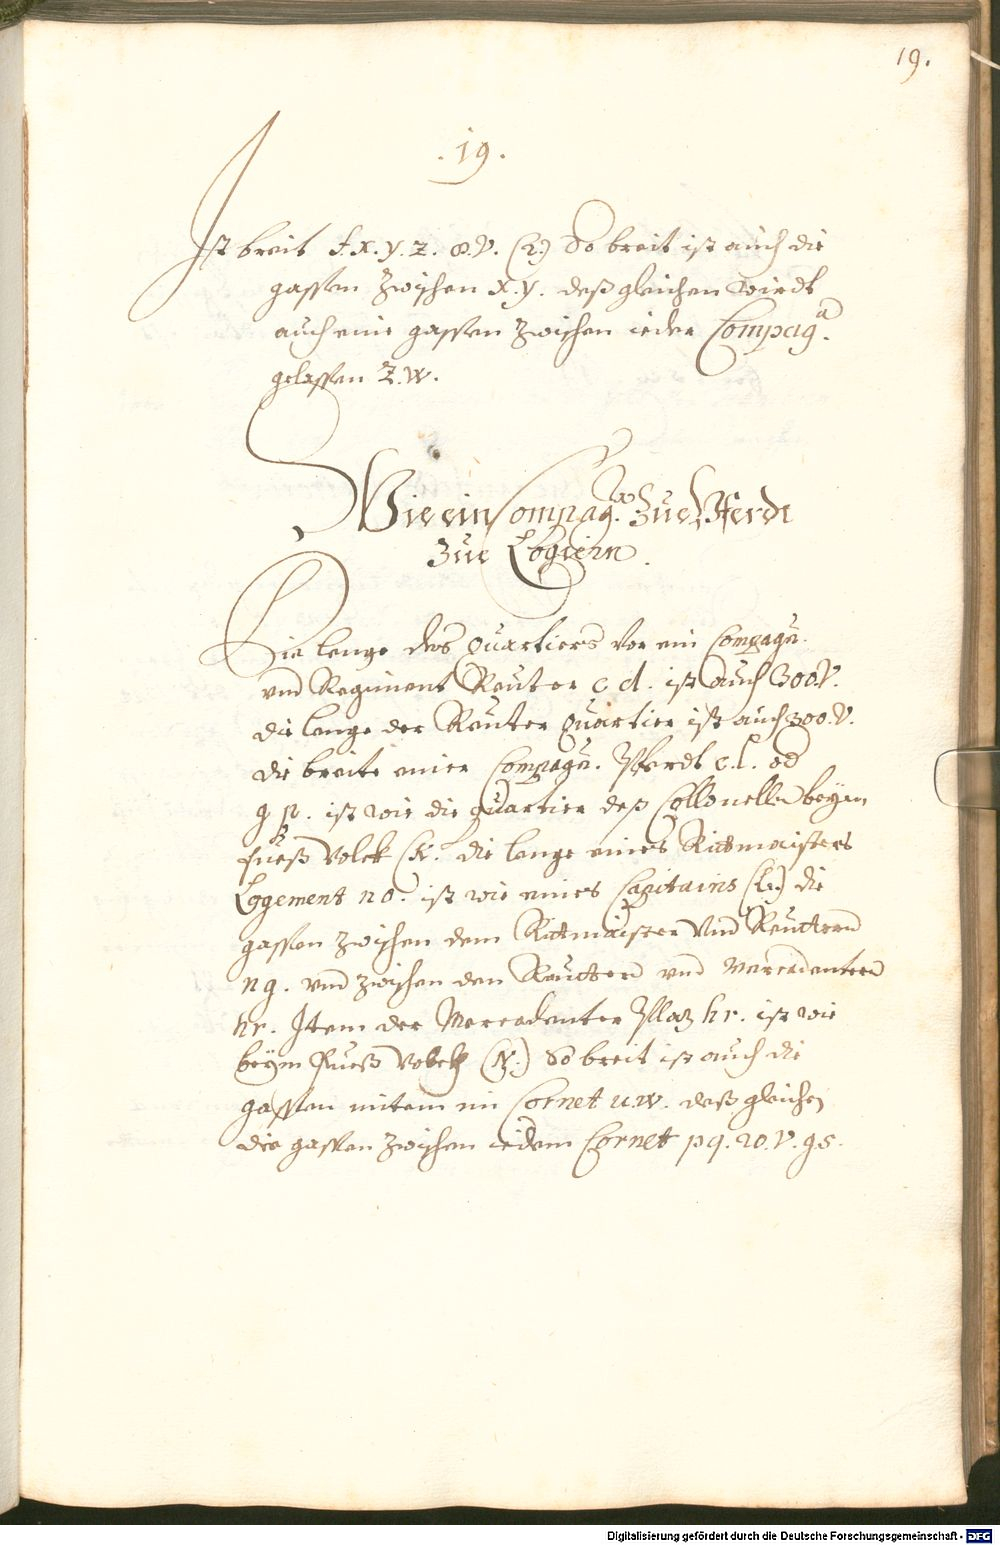 19.
. 19 .
Ist breit S. x. y. z. 8. V. (2.) So breit ist auch die
gassen Zwischen x. y. deßgleichen wirdt
auch eine gassen Zwischen ieder Compag.ᵃ
gelassen Z. w.
Wie ein Compag. Zue Pferdt
Zue Logiern.
Die lenge des Quartiers vor ein Compagn.
vnd Regiment Reuter c d. ist auch 300. V.
die lenge der Reuter Quartier ist auch 300. V.
die breite einer Compagn. Pferdt c. l. od
g p. ist wie die quartier deß Collonellen beym
fueß Volck (K. die lenge eines Rittmaisters
Logement n o. ist wie eines Capitains (L.) die
gassen Zwischen dem Rittmaister Vnd Reuttern
n g. vnd Zwischen den Reuttern vnd Marcadentern
hr. Item der Mercadenter Plaz h r. ist wie
beÿm Fueß Volckh (N.) So breit ist auch die
gassen mitem im Cornet u. w. deß gleichen
die gassen Zwischen iedem Cornet p q. 20. V. g s.
Digitalisierung gefördert durch die Deutsche Forschungsgemeinschaft - DFG